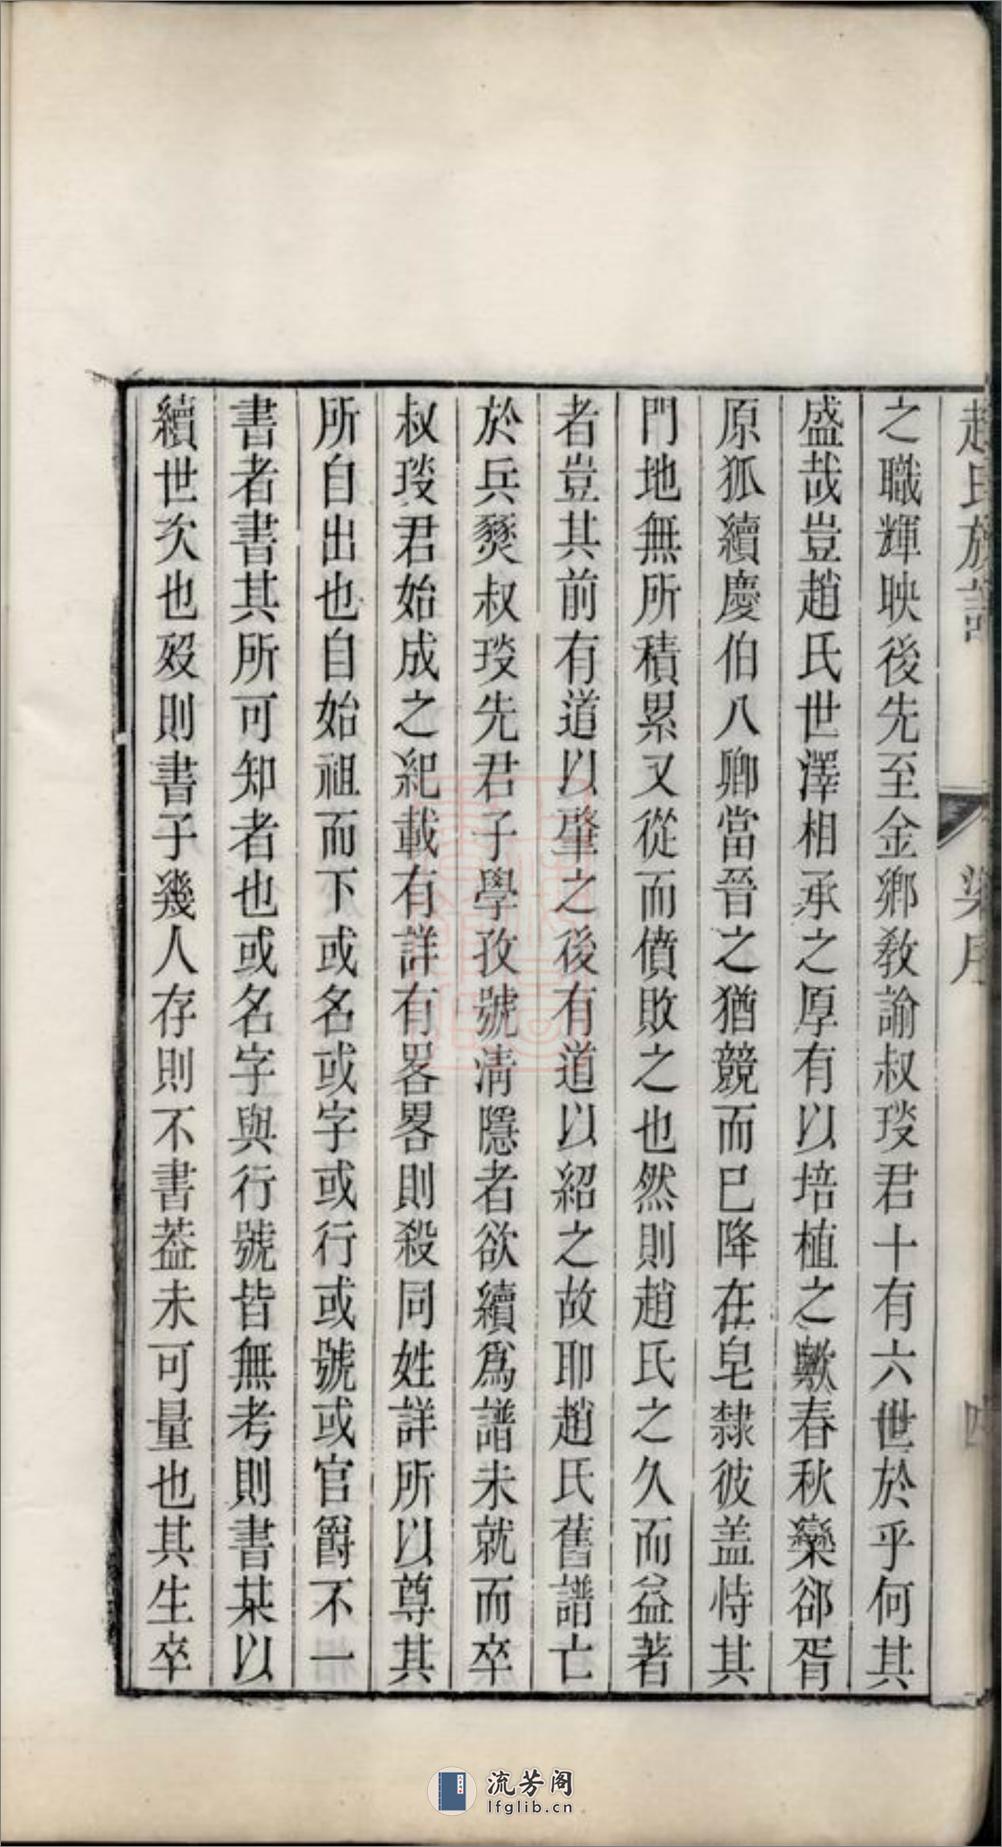 趙氏族譜 梁序 四
之職輝映後先至金鄉教諭叔琰君十有六世於乎何其
盛哉豈趙氏世澤相承之厚有以培植之歟春秋欒郤胥
原狐續慶伯八卿當晉之猶競而已降在皂隸彼盖恃其
門地無所積累又從而僨敗之也然則趙氏之久而益著
者豈其前有道以肇之後有道以紹之故耶趙氏舊譜亡
於兵燹叔琰先君子學孜號淸隱者欲續爲譜未就而卒
叔琰君始成之紀載有詳有畧畧則殺同姓詳所以尊其
所自出也自始祖而下或名或字或行或號或官爵不一
書者書其所可知者也或名字與行號皆無考則書某以
續世次也歿則書子幾人存則不書葢未可量也其生卒
流芳阁
lfglib.cn